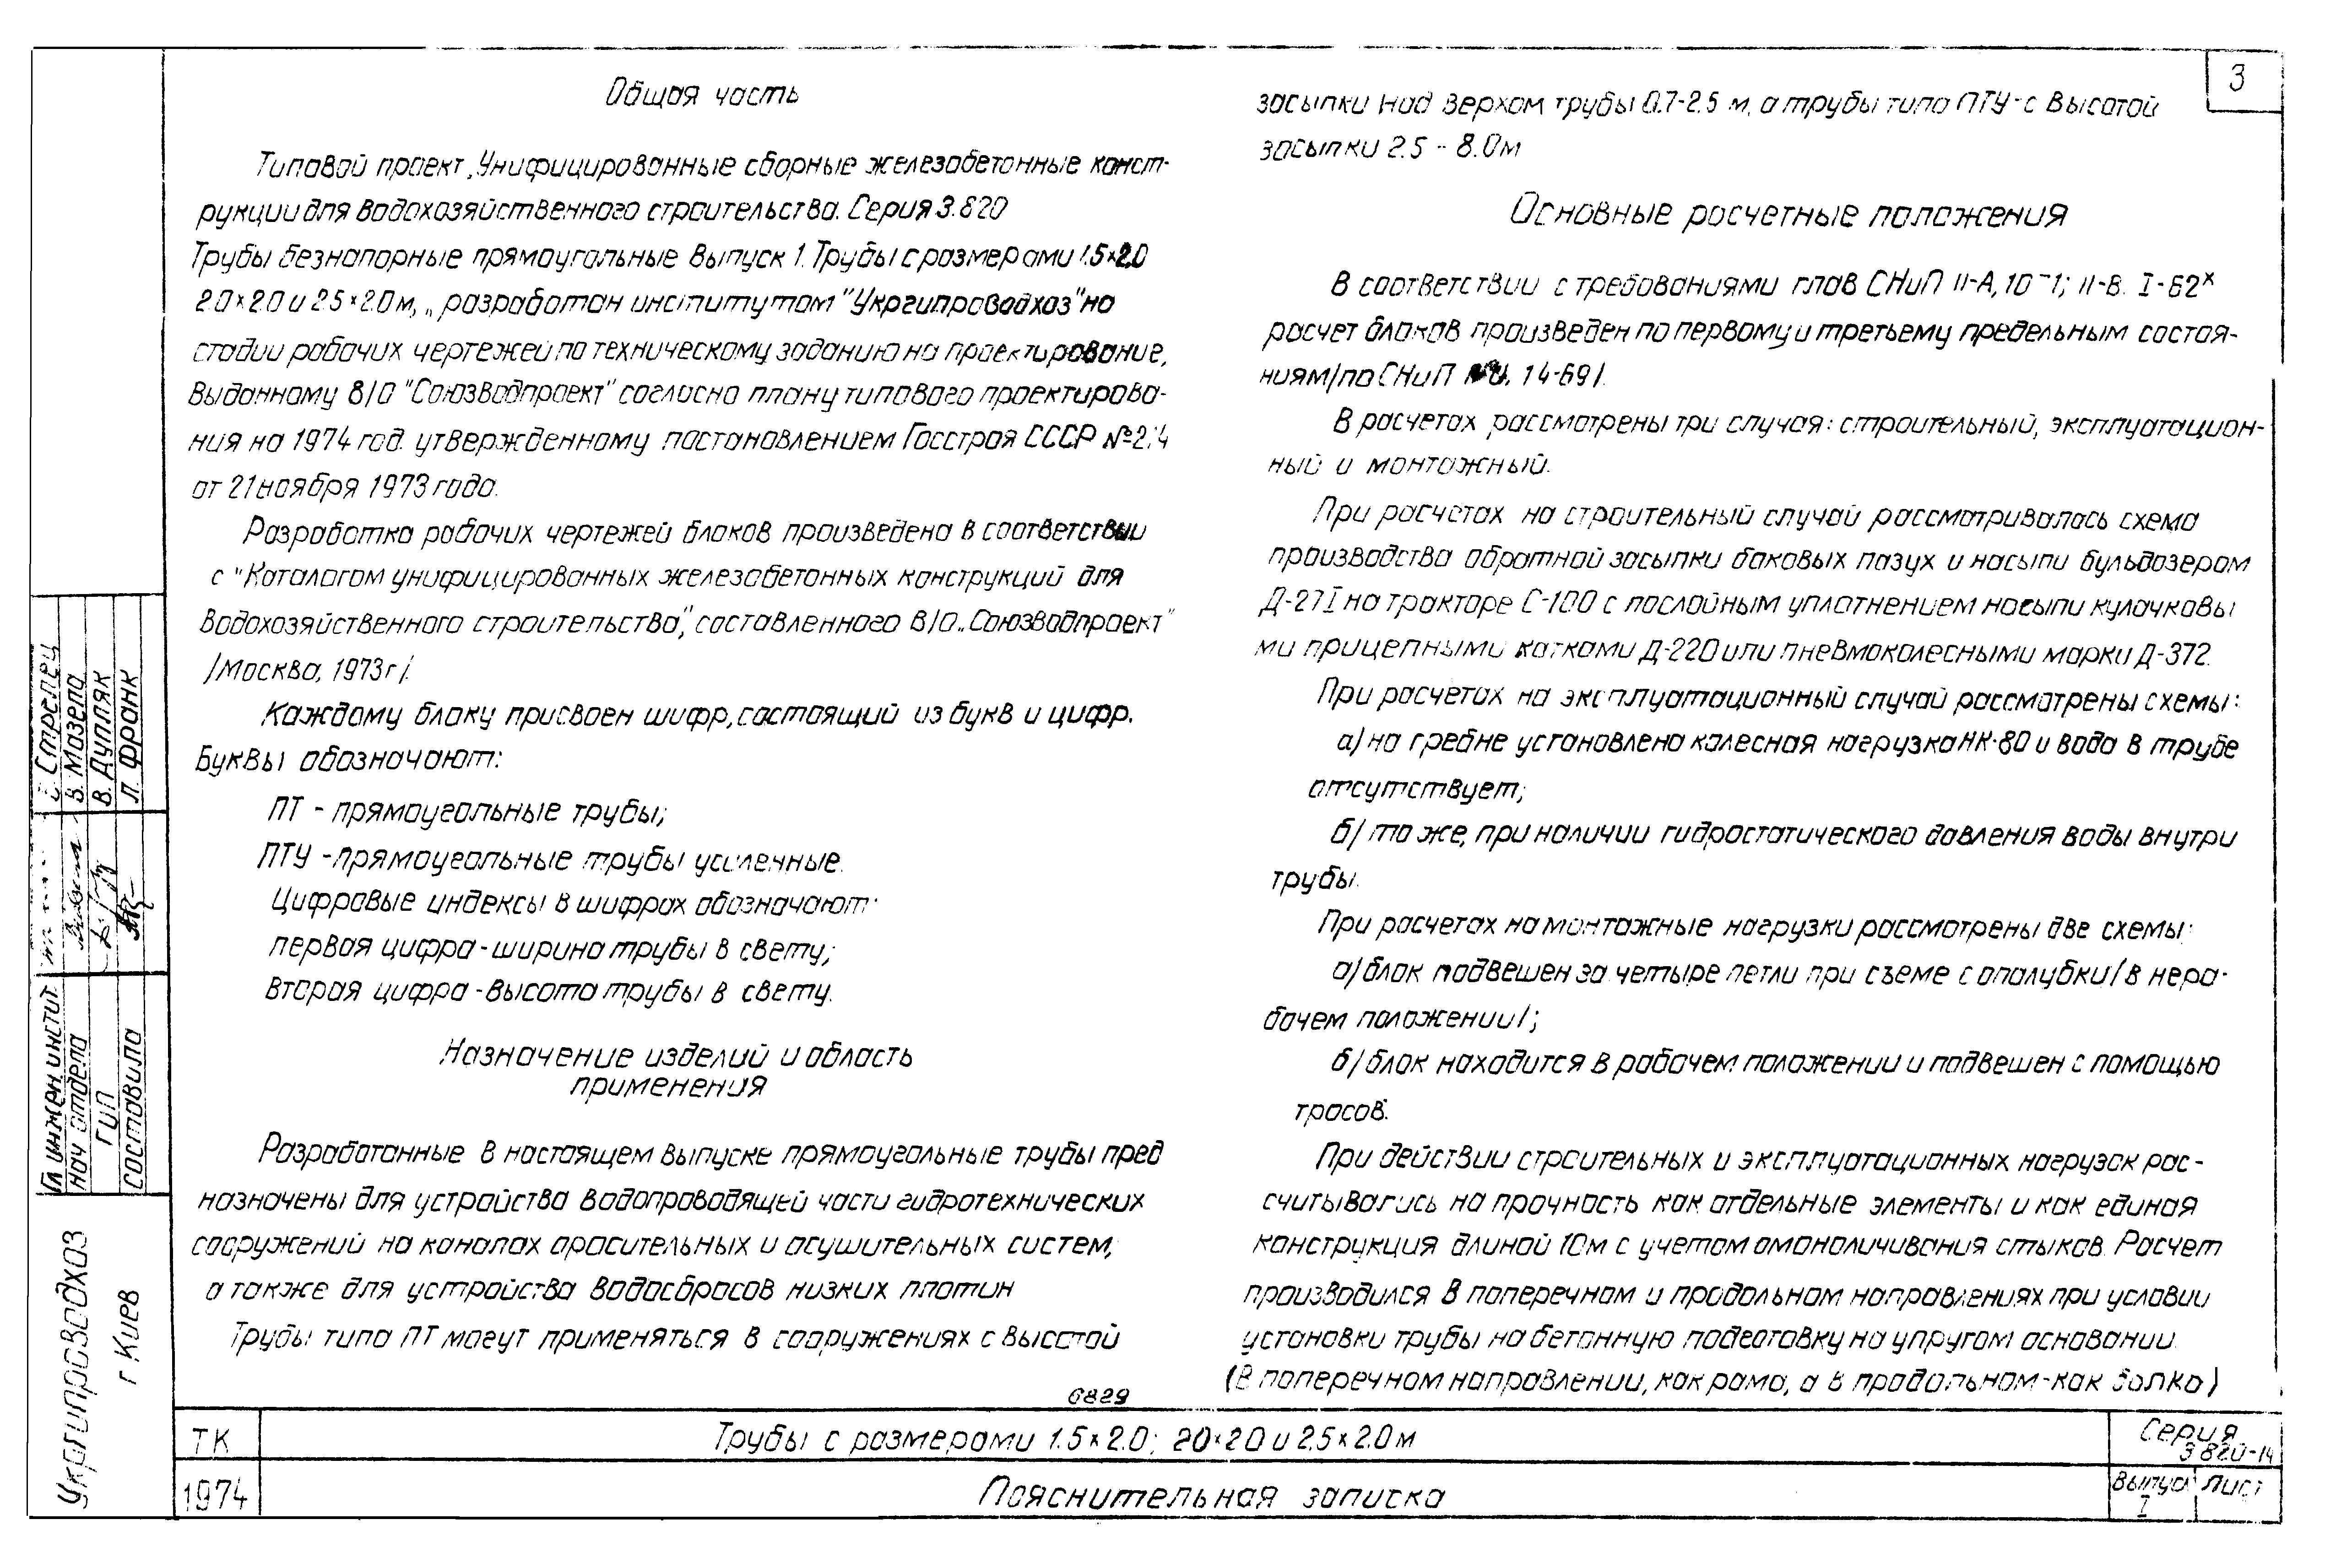 3
Общая часть
Типовой проект „Унифицированные сборные железобетонные конст-
рукции для водохозяйственного строительства. Серия 3.820
Трубы безнапорные прямоугольные Выпуск 1. Трубы с размерами 1.5×2.0
2.0×2.0 и 2.5×2.0м, „ разработан институтом "Укргипроводхоз" на
стадии рабочих чертежей по техническому заданию на проектирование,
выданному В/О "Союзводпроект" согласно плану типового проектирова-
ния на 1974 год. утвержденному постановлением Госстроя СССР
от 21 ноября 1973 года.
Разработка рабочих чертежей блоков произведена в соответствии
с "Каталогом унифицированных железобетонных конструкций для
водохозяйственного строительства", составленного В/О „Союзводпроект"
/Москва, 1973г/.
Каждому блоку присвоен шифр, состоящий из букв и цифр.
Буквы обозначают:
ПТ - прямоугольные трубы;
ПТУ - прямоугольные трубы усиленные.
Цифровые индексы в шифрах обозначают:
первая цифра - ширина трубы в свету;
вторая цифра - высота трубы в свету.
Назначение изделий и область
применения
Разработанные в настоящем выпуске прямоугольные трубы пред
назначены для устройства водопроводящей части гидротехнических
сооружений на каналах оросительных и осушительных систем,
а также для устройства водосбросов низких плотин
Трубы типа ПТ могут применяться в сооружениях с высотой
засыпки над верхом трубы 0.7-2.5 м, а трубы типа ПТУ - с высотой
засыпки 2.5 - 8.0м
Основные расчетные положения
В соответствии с требованиями глав СНиП II-А, 10-1; II-В. I-62ˣ
расчет блоков произведен по первому и третьему предельным состоя-
ниям /по СНиП 14-69/.
В расчетах рассмотрены три случая: строительный, эксплуатацион-
ный и монтажный.
При расчетах на строительный случай рассматривалась схема
производства обратной засыпки боковых пазух и насыпи бульдозером
Д-271 на тракторе С-100 с послойным уплотнением насыпи кулачковы
ми прицепными катками Д-220 или пневмоколесными марки Д-372.
При расчетах на эксплуатационный случай рассмотрены схемы:
а) на гребне установлена колесная нагрузка НК-80 и вода в трубе
отсутствует;
б/ то же, при наличии гидростатического давления воды внутри
трубы.
При расчетах на монтажные нагрузки рассмотрены две схемы:
а) блок подвешен за четыре петли при съеме с опалубки /в нера-
бочем положении/;
б/ блок находится в рабочем положении и подвешен с помощью
тросов.
При действии строительных и эксплуатационных нагрузок рас-
считывались на прочность как отдельные элементы и как единая
конструкция длиной 10м с учетом омоноличивания стыков. Расчет
производился в поперечном и продольном направлениях при условии
установки трубы на бетонную подготовку на упругом основании.
(в поперечном направлении, как рама, а в продольном - как балка)
6829
ТК
1974
Трубы с размерами 1.5×2.0; 2.0×2.0 и 2.5×2.0м
Пояснительная записка
Серия
3.820-14
Выпуск
I
Лист
Гл. инжен. инстит. Стрелец
Нач отдела В. Мазепа
ГиП В. Дупляк
составила Л. Франк
Укргипроводхоз
г Киев